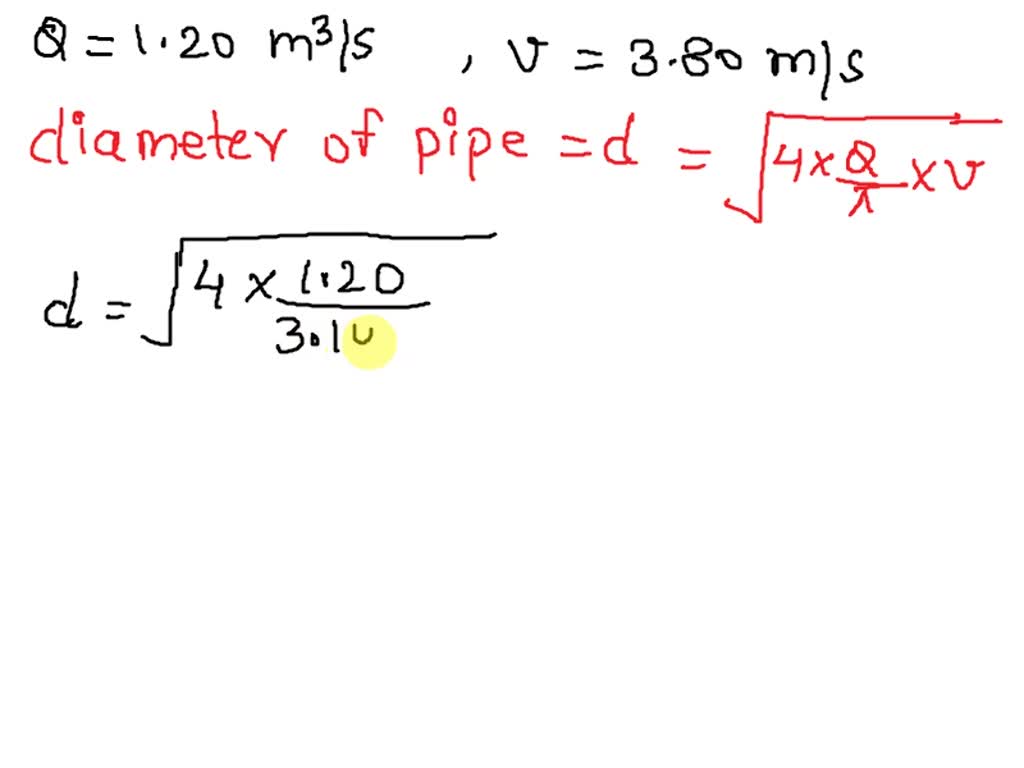 Q = 1.20 m³/s , v = 3.80 m/s
diameter of pipe = d = √(4 × Q/π × v)
d = √(4 × 1.20/3.14